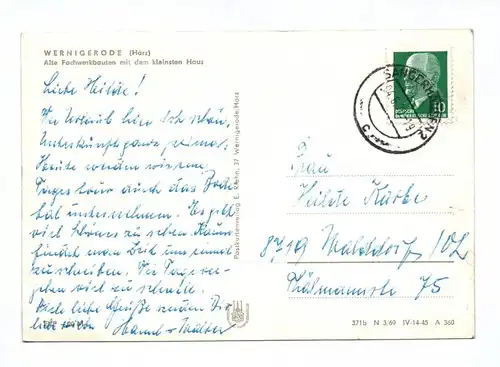 WERNIGERODE (Harz)
Alte Fachwerkbauten mit dem kleinsten Haus
Liebe Hilde!
Der Urlaub hier ist schön,
Unterkunft ganz prima.
Heute werden wir eine
Tages tour durch das Bode-
tal unternehmen. Es gibt
viel Schönes zu sehen. Kaum
findet man Zeit um einmal
zu schreiben. Die Tage ver-
gehen viel zu schnell.
liebe Grüße
Hanna + Walter
Postkartenverlag E. Riehn, 37 Wernigerode/Harz
SANGERHAUSEN 2
10
DEUTSCHE DEMOKRATISCHE REPUBLIK
Frau
Hilde
8719 Walddorf/OL
Thälmannstr 75
371b N 3/69 IV-14-45 A 360